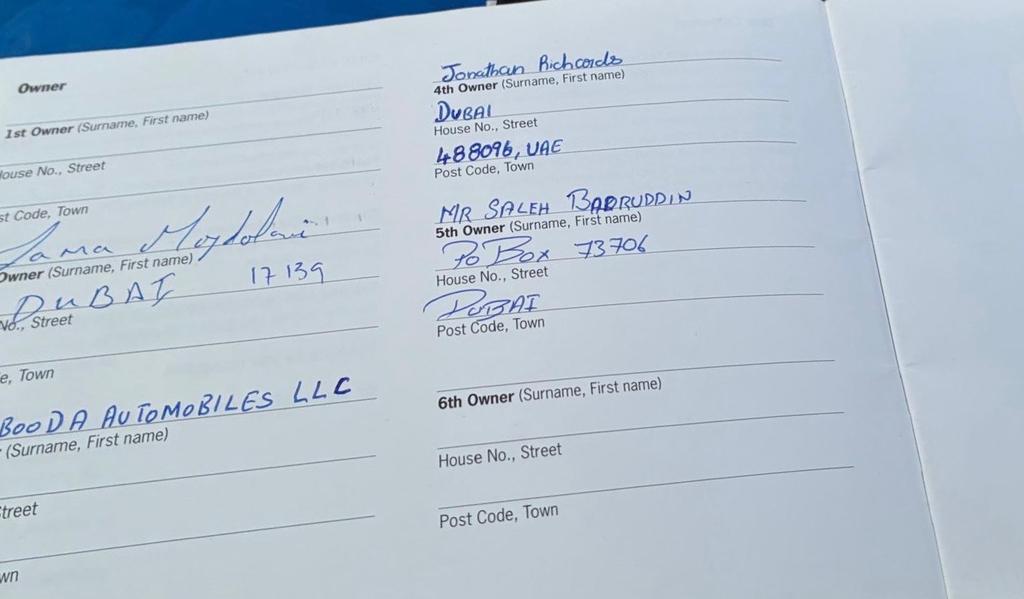 Owner
1st Owner (Surname, First name)
House No., Street
st Code, Town
Lama Moydolani
Owner (Surname, First name)
DUBAI 17139
No., Street
e, Town
BOODA AUTOMOBILES LLC
(Surname, First name)
Street
wn
Jonathan Richcards
4th Owner (Surname, First name)
DUBAI
House No., Street
488096, UAE
Post Code, Town
MR SALEH BADRUDDIN
5th Owner (Surname, First name)
PO BOX 73706
House No., Street
DUBAI
Post Code, Town
6th Owner (Surname, First name)
House No., Street
Post Code, Town